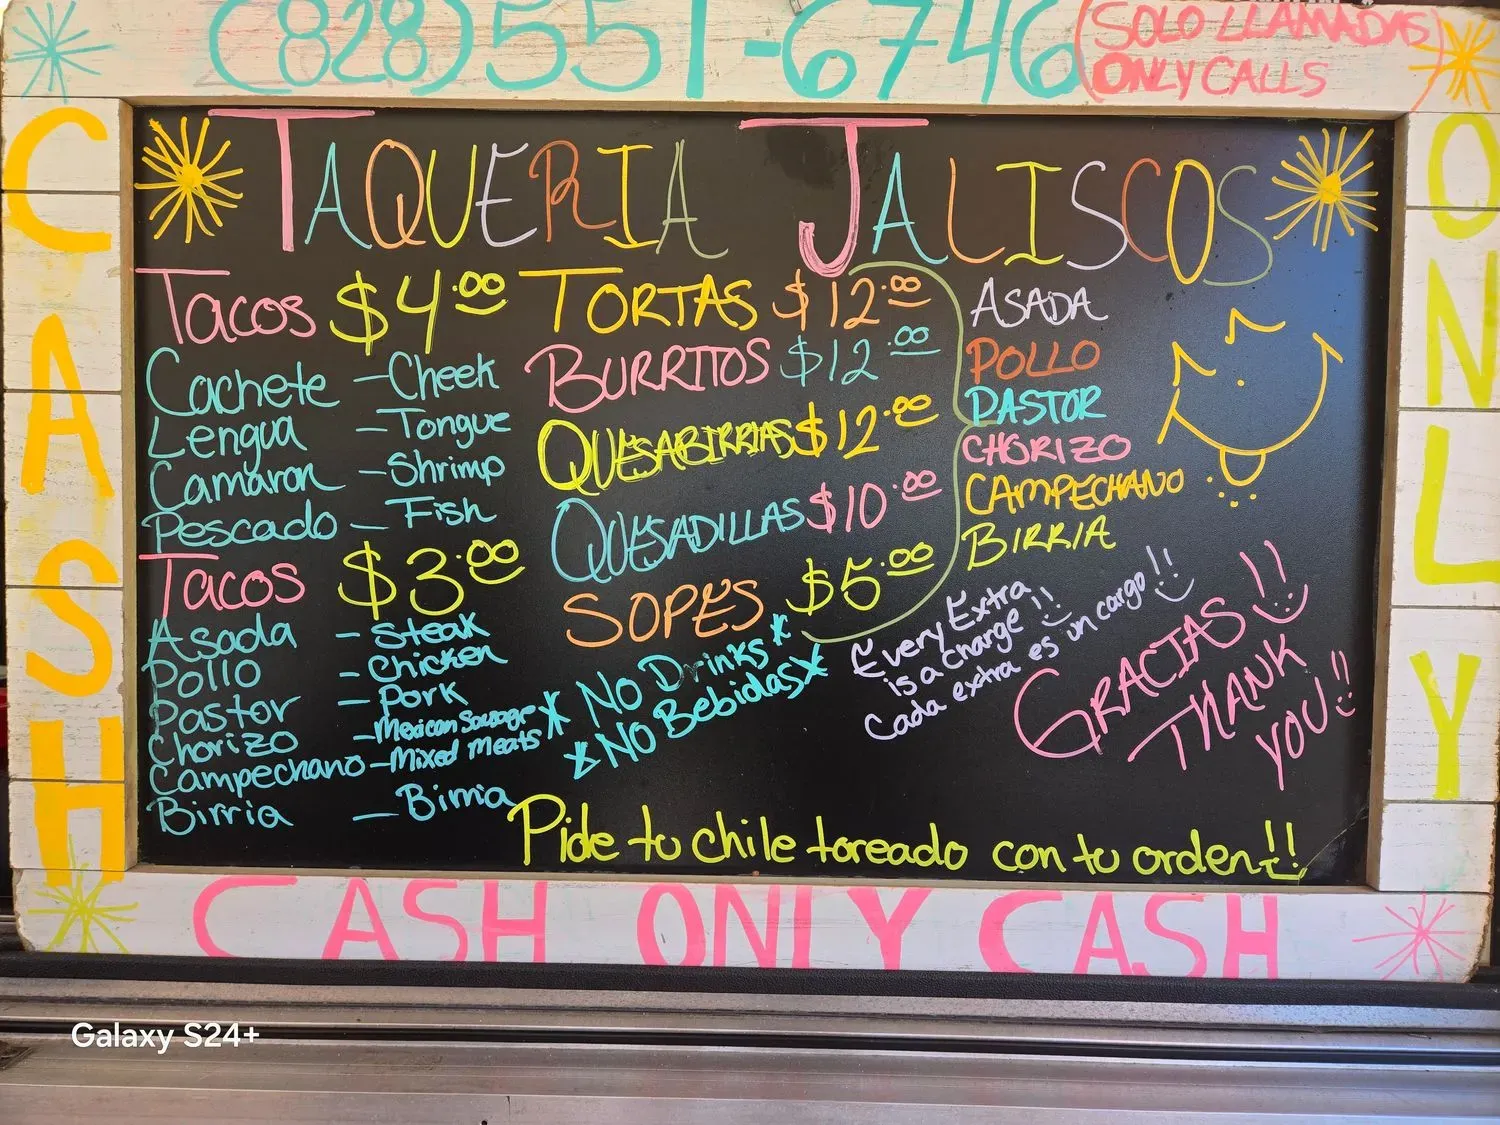 (828)551-6746 (SOLO LLAMADAS)
(ONLY CALLS)
CASH
ONLY
TAQUERIA JALISCOS
Tacos $4.00
Cachete - Cheek
Lengua - Tongue
Camaron - Shrimp
Pescado - Fish
Tacos $3.00
Asada - Steak
Pollo - Chicken
Pastor - Pork
Chorizo - Mexican Sausage
Campechano - Mixed Meats
Birria - Birria
TORTAS $12.00
BURRITOS $12.00
QUESABIRRIAS $12.00
QUESADILLAS $10.00
SOPES $5.00
ASADA
POLLO
PASTOR
CHORIZO
CAMPECHANO
BIRRIA
* NO Drinks *
* NO Bebidas *
Every Extra
is a charge!!
Cada extra es un cargo!!
GRACIAS!!
THANK
YOU!!
Pide tu chile toreado con tu orden!!
CASH ONLY CASH
Galaxy S24+